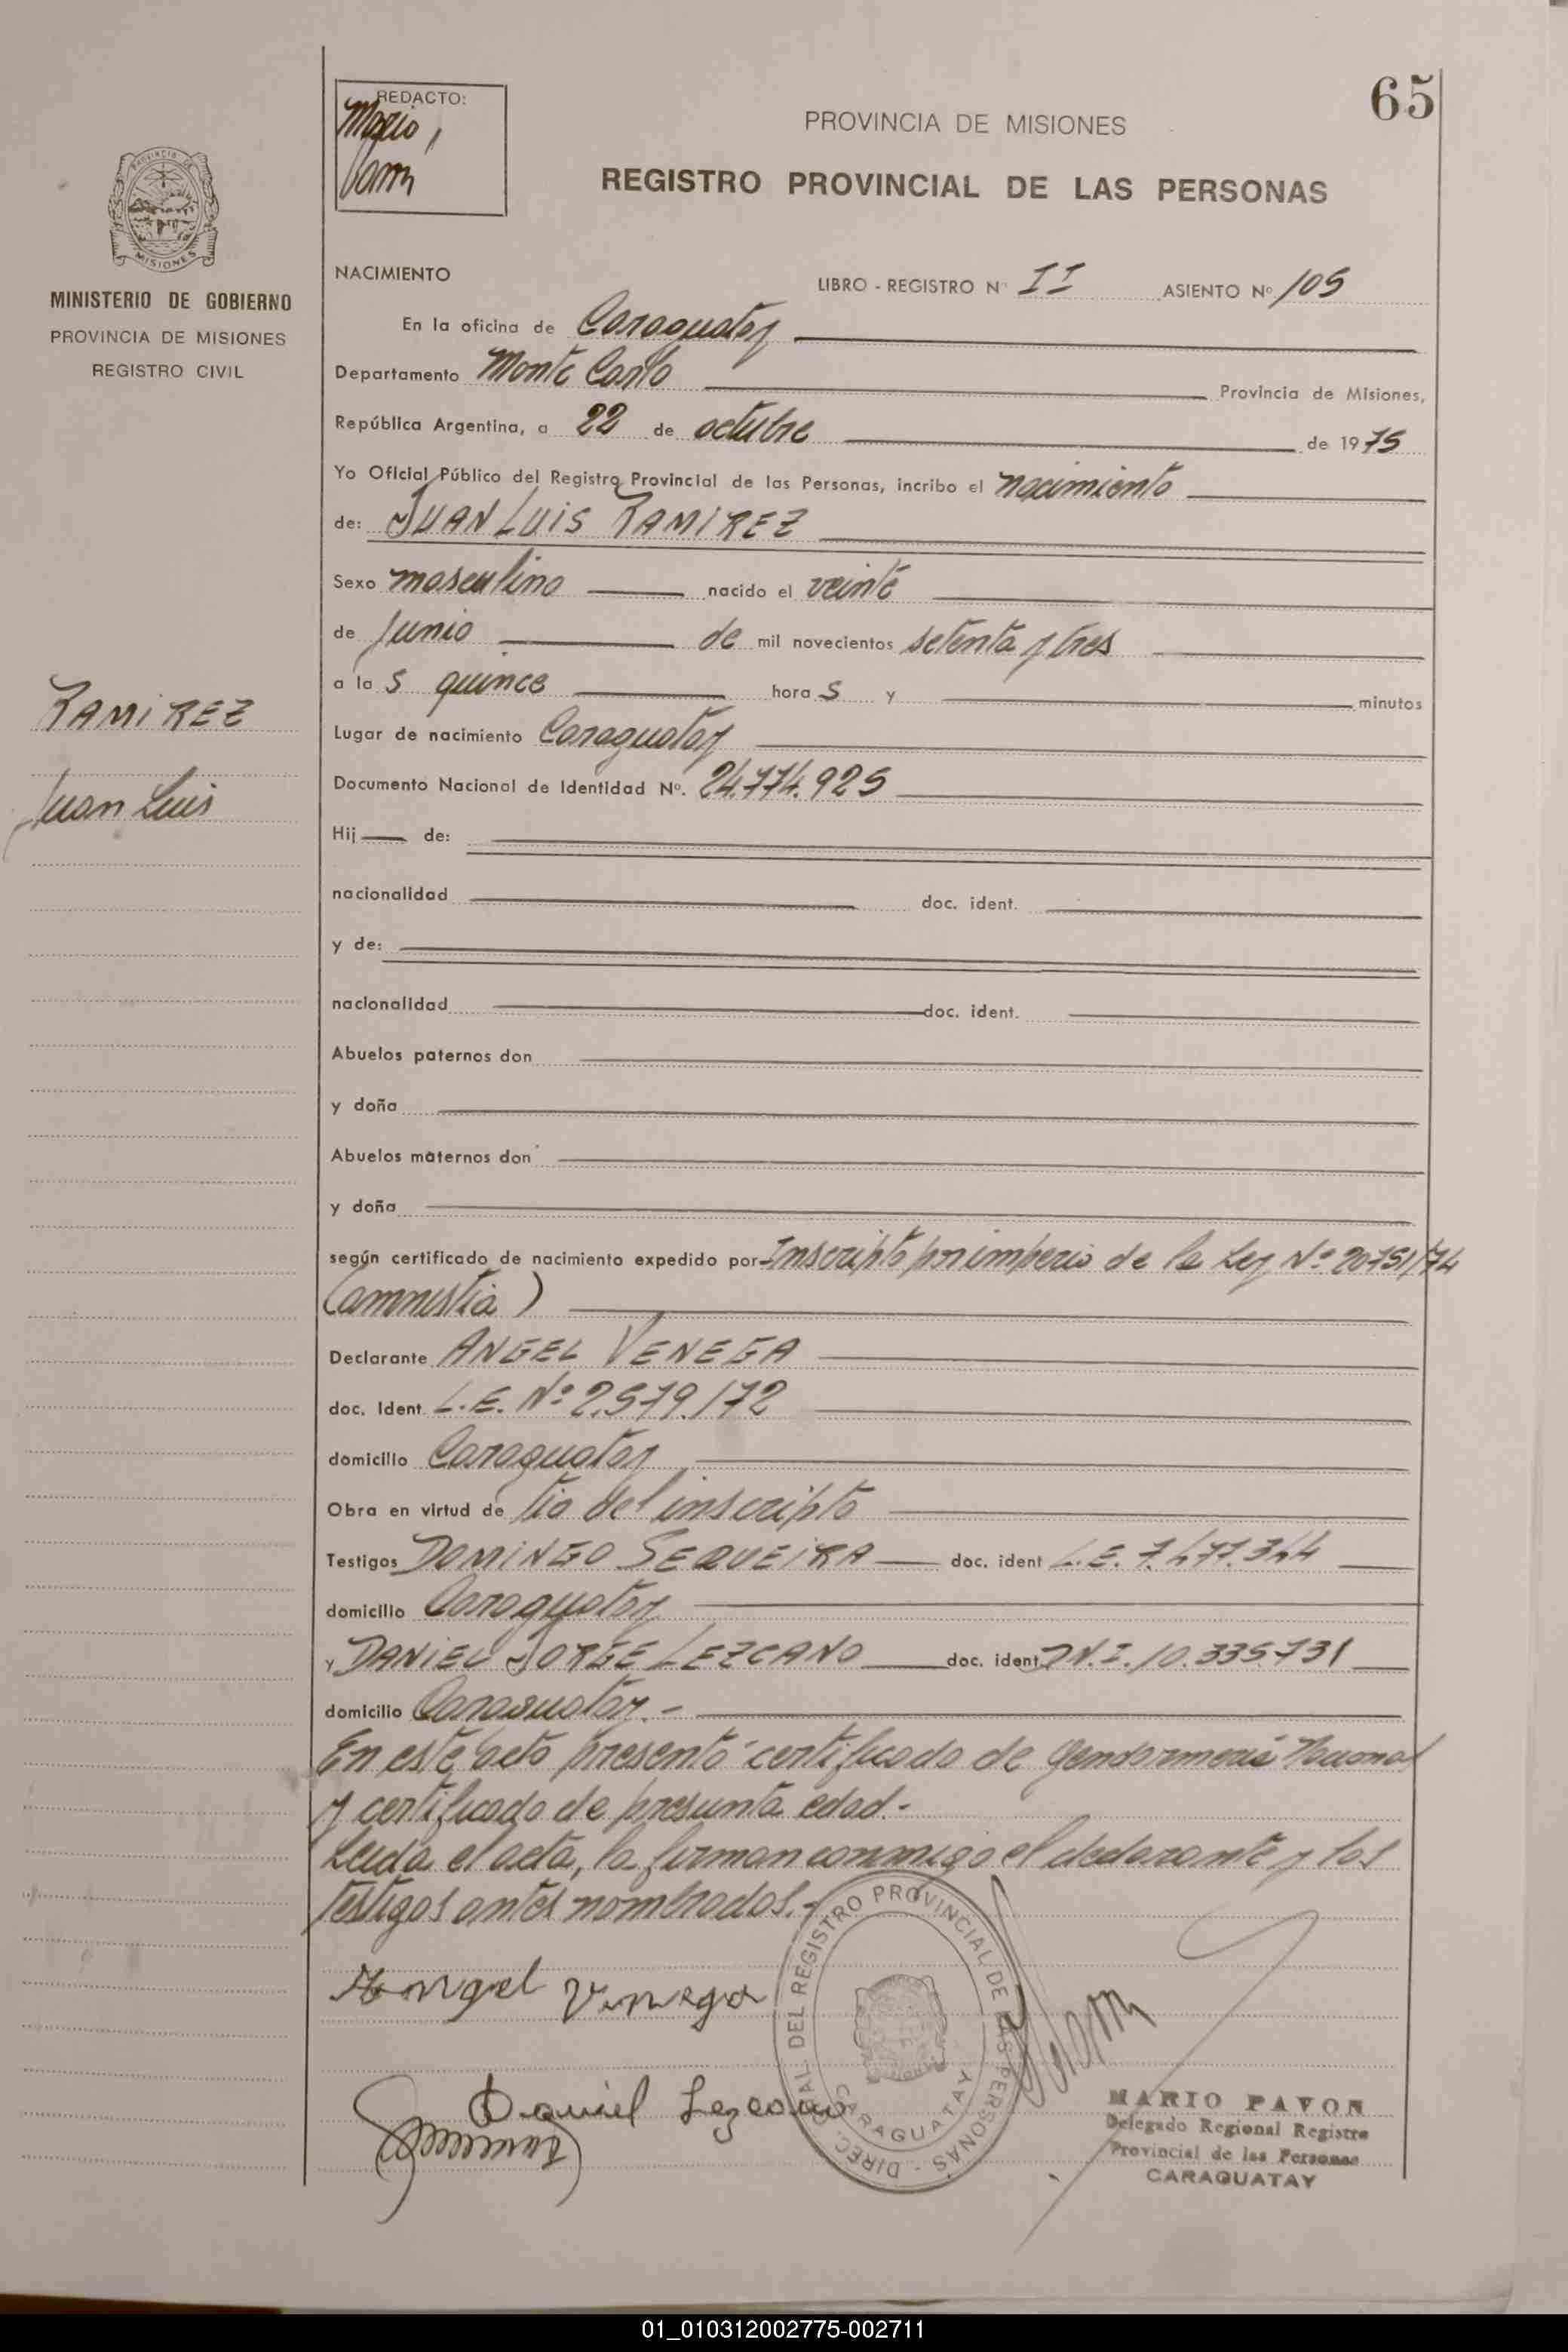 65
REDACTO:
Mario
Pavon
PROVINCIA DE MISIONES
REGISTRO PROVINCIAL DE LAS PERSONAS
PROVINCIA DE
MISIONES
MINISTERIO DE GOBIERNO
PROVINCIA DE MISIONES
REGISTRO CIVIL
RAMIREZ
Juan Luis
NACIMIENTO LIBRO - REGISTRO Nº II ASIENTO Nº 105
En la oficina de Caraguatay
Departamento Monte Carlo Provincia de Misiones,
República Argentina, a 22 de octubre de 1975
Yo Oficial Público del Registro Provincial de las Personas, incribo el nacimiento
de: JUAN LUIS RAMIREZ
Sexo masculino nacido el veinte
de Junio de mil novecientos setenta y tres
a la s quince hora s y minutos
Lugar de nacimiento Caraguatay
Documento Nacional de Identidad Nº. 24.774.925
Hij de:
nacionalidad doc. ident.
y de:
nacionalidad doc. ident.
Abuelos paternos don
y doña
Abuelos maternos don
y doña
según certificado de nacimiento expedido por Inscripto por imperio de la Ley Nº 20751/74
(amnistia)
Declarante ANGEL VENEGA
doc. Ident. L.E. Nº 2.579.172
domicilio Caraguatay
Obra en virtud de tio del inscripto
Testigos DOMINGO SEQUEIRA doc. ident L.E. 7.477.344
domicilio Caraguatay
y DANIEL JORGE LEZCANO doc. ident. D.N.I. 10.335.731
domicilio Caraguatay.-
En este acto presentó certificado de Gendarmeria Nacional
y certificado de presunta edad.-
Leida el acta, la firman conmigo el declarante y los
testigos antes nombrados.-
Angel Venega
Daniel Lezcano
DIREC. GRAL. DEL REGISTRO PROVINCIAL DE LAS PERSONAS -
CARAGUATAY
MARIO PAVON
Delegado Regional Registro
Provincial de las Personas
CARAGUATAY
01_010312002775-002711